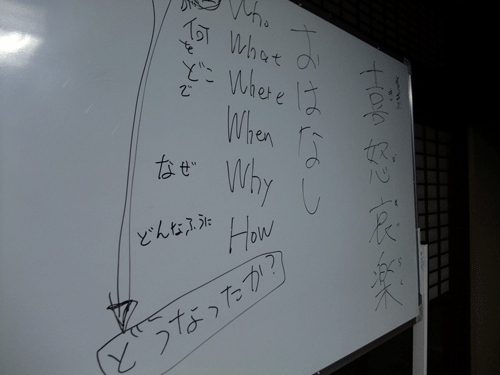 喜怒哀楽
おはなし
Who
何を What
どこで Where
When
なぜ Why
どんなふうに How
どうなったか?